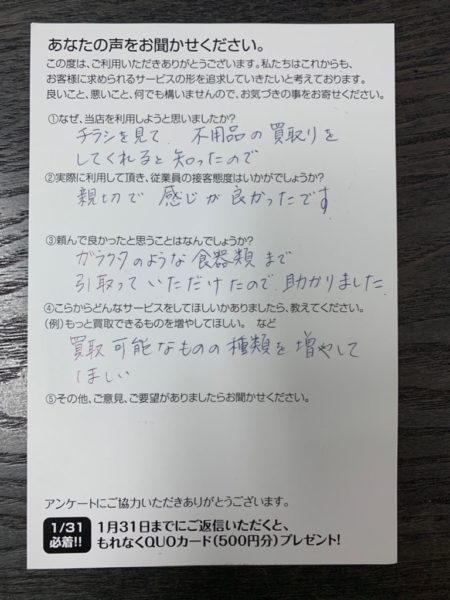 あなたの声をお聞かせください。
この度は、ご利用いただきありがとうございます。私たちはこれからも、
お客様に求められるサービスの形を追求していきたいと考えております。
良いこと、悪いこと、何でも構いませんので、お気づきの事をお寄せください。
①なぜ、当店を利用しようと思いましたか?
チラシを見て、不用品の買取りを
してくれると知ったので
②実際に利用して頂き、従業員の接客態度はいかがでしょうか?
親切で感じが良かったです
③頼んで良かったと思うことはなんでしょうか?
ガラクタのような食器類まで
引取っていただけたので助かりました
④こらからどんなサービスをしてほしいかありましたら、教えてください。
(例)もっと買取できるものを増やしてほしい。 など
買取可能なものの種類を増やして
ほしい
⑤その他、ご意見、ご要望がありましたらお聞かせください。
アンケートにご協力いただきありがとうございます。
1/31
必着!!
1月31日までにご返信いただくと、
もれなくQUOカード(500円分)プレゼント!